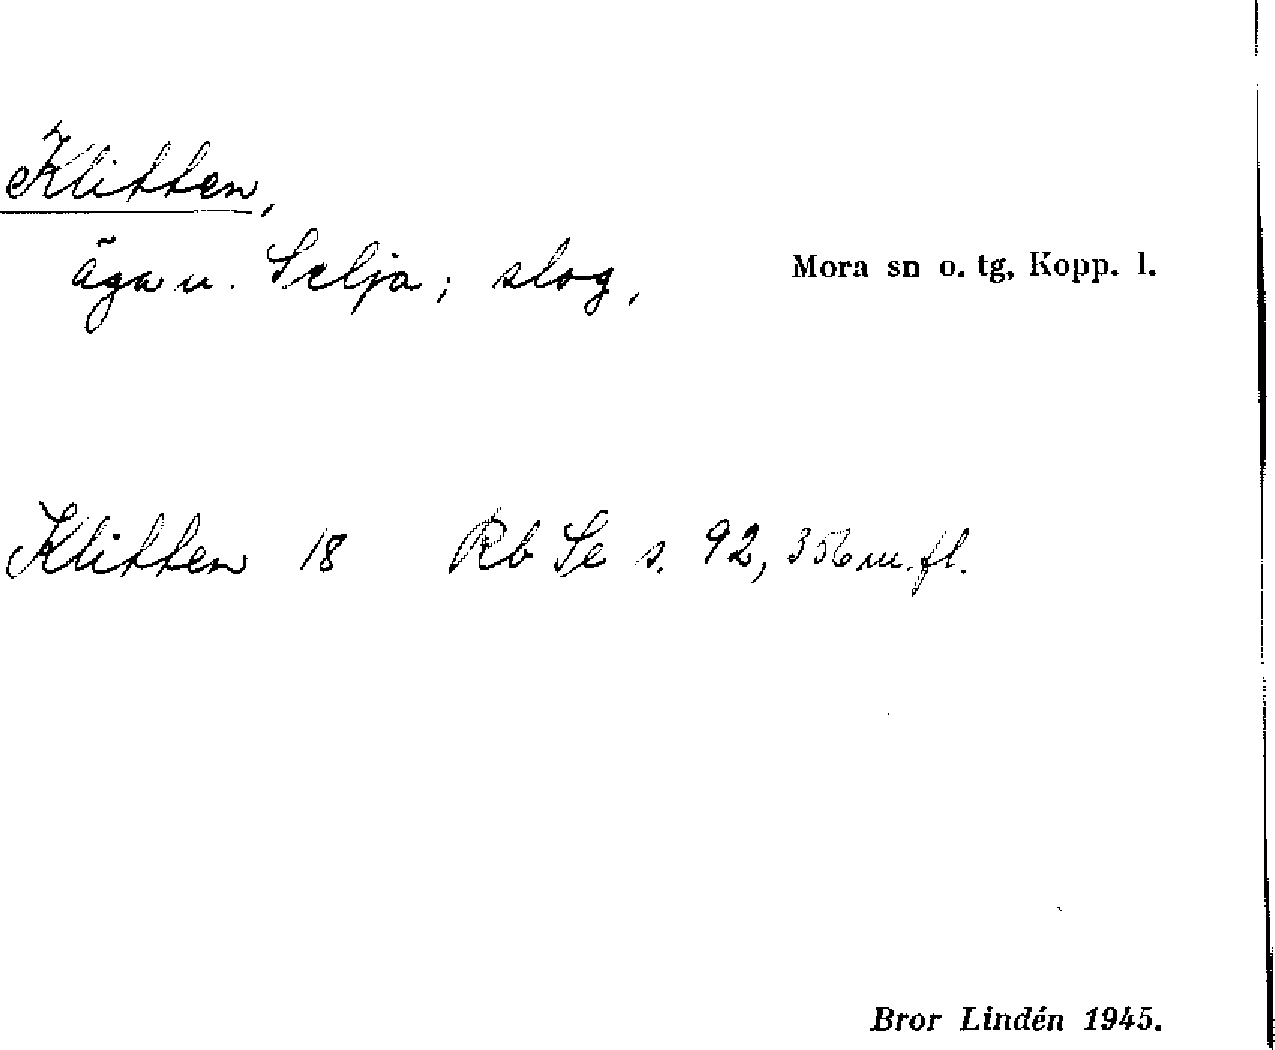 Klitten,
äga u. Selja; slog,
Mora sn o. tg, Kopp. l.
Klitten 18 Rb Se s. 92, 356 m. fl.
Bror Lindén 1945.